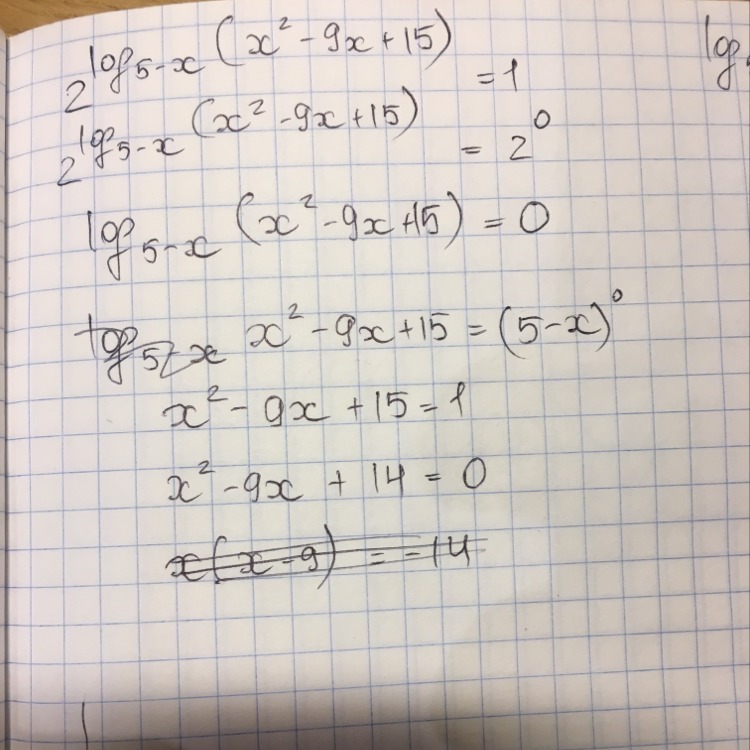 2^{log_{5-x}(x²-9x+15)} = 1
2^{log_{5-x}(x²-9x+15)} = 2⁰
log_{5-x}(x²-9x+15) = 0
log_{5-x} x²-9x+15 = (5-x)⁰
x²-9x+15=1
x²-9x+14=0
x(x-9) = -14
log